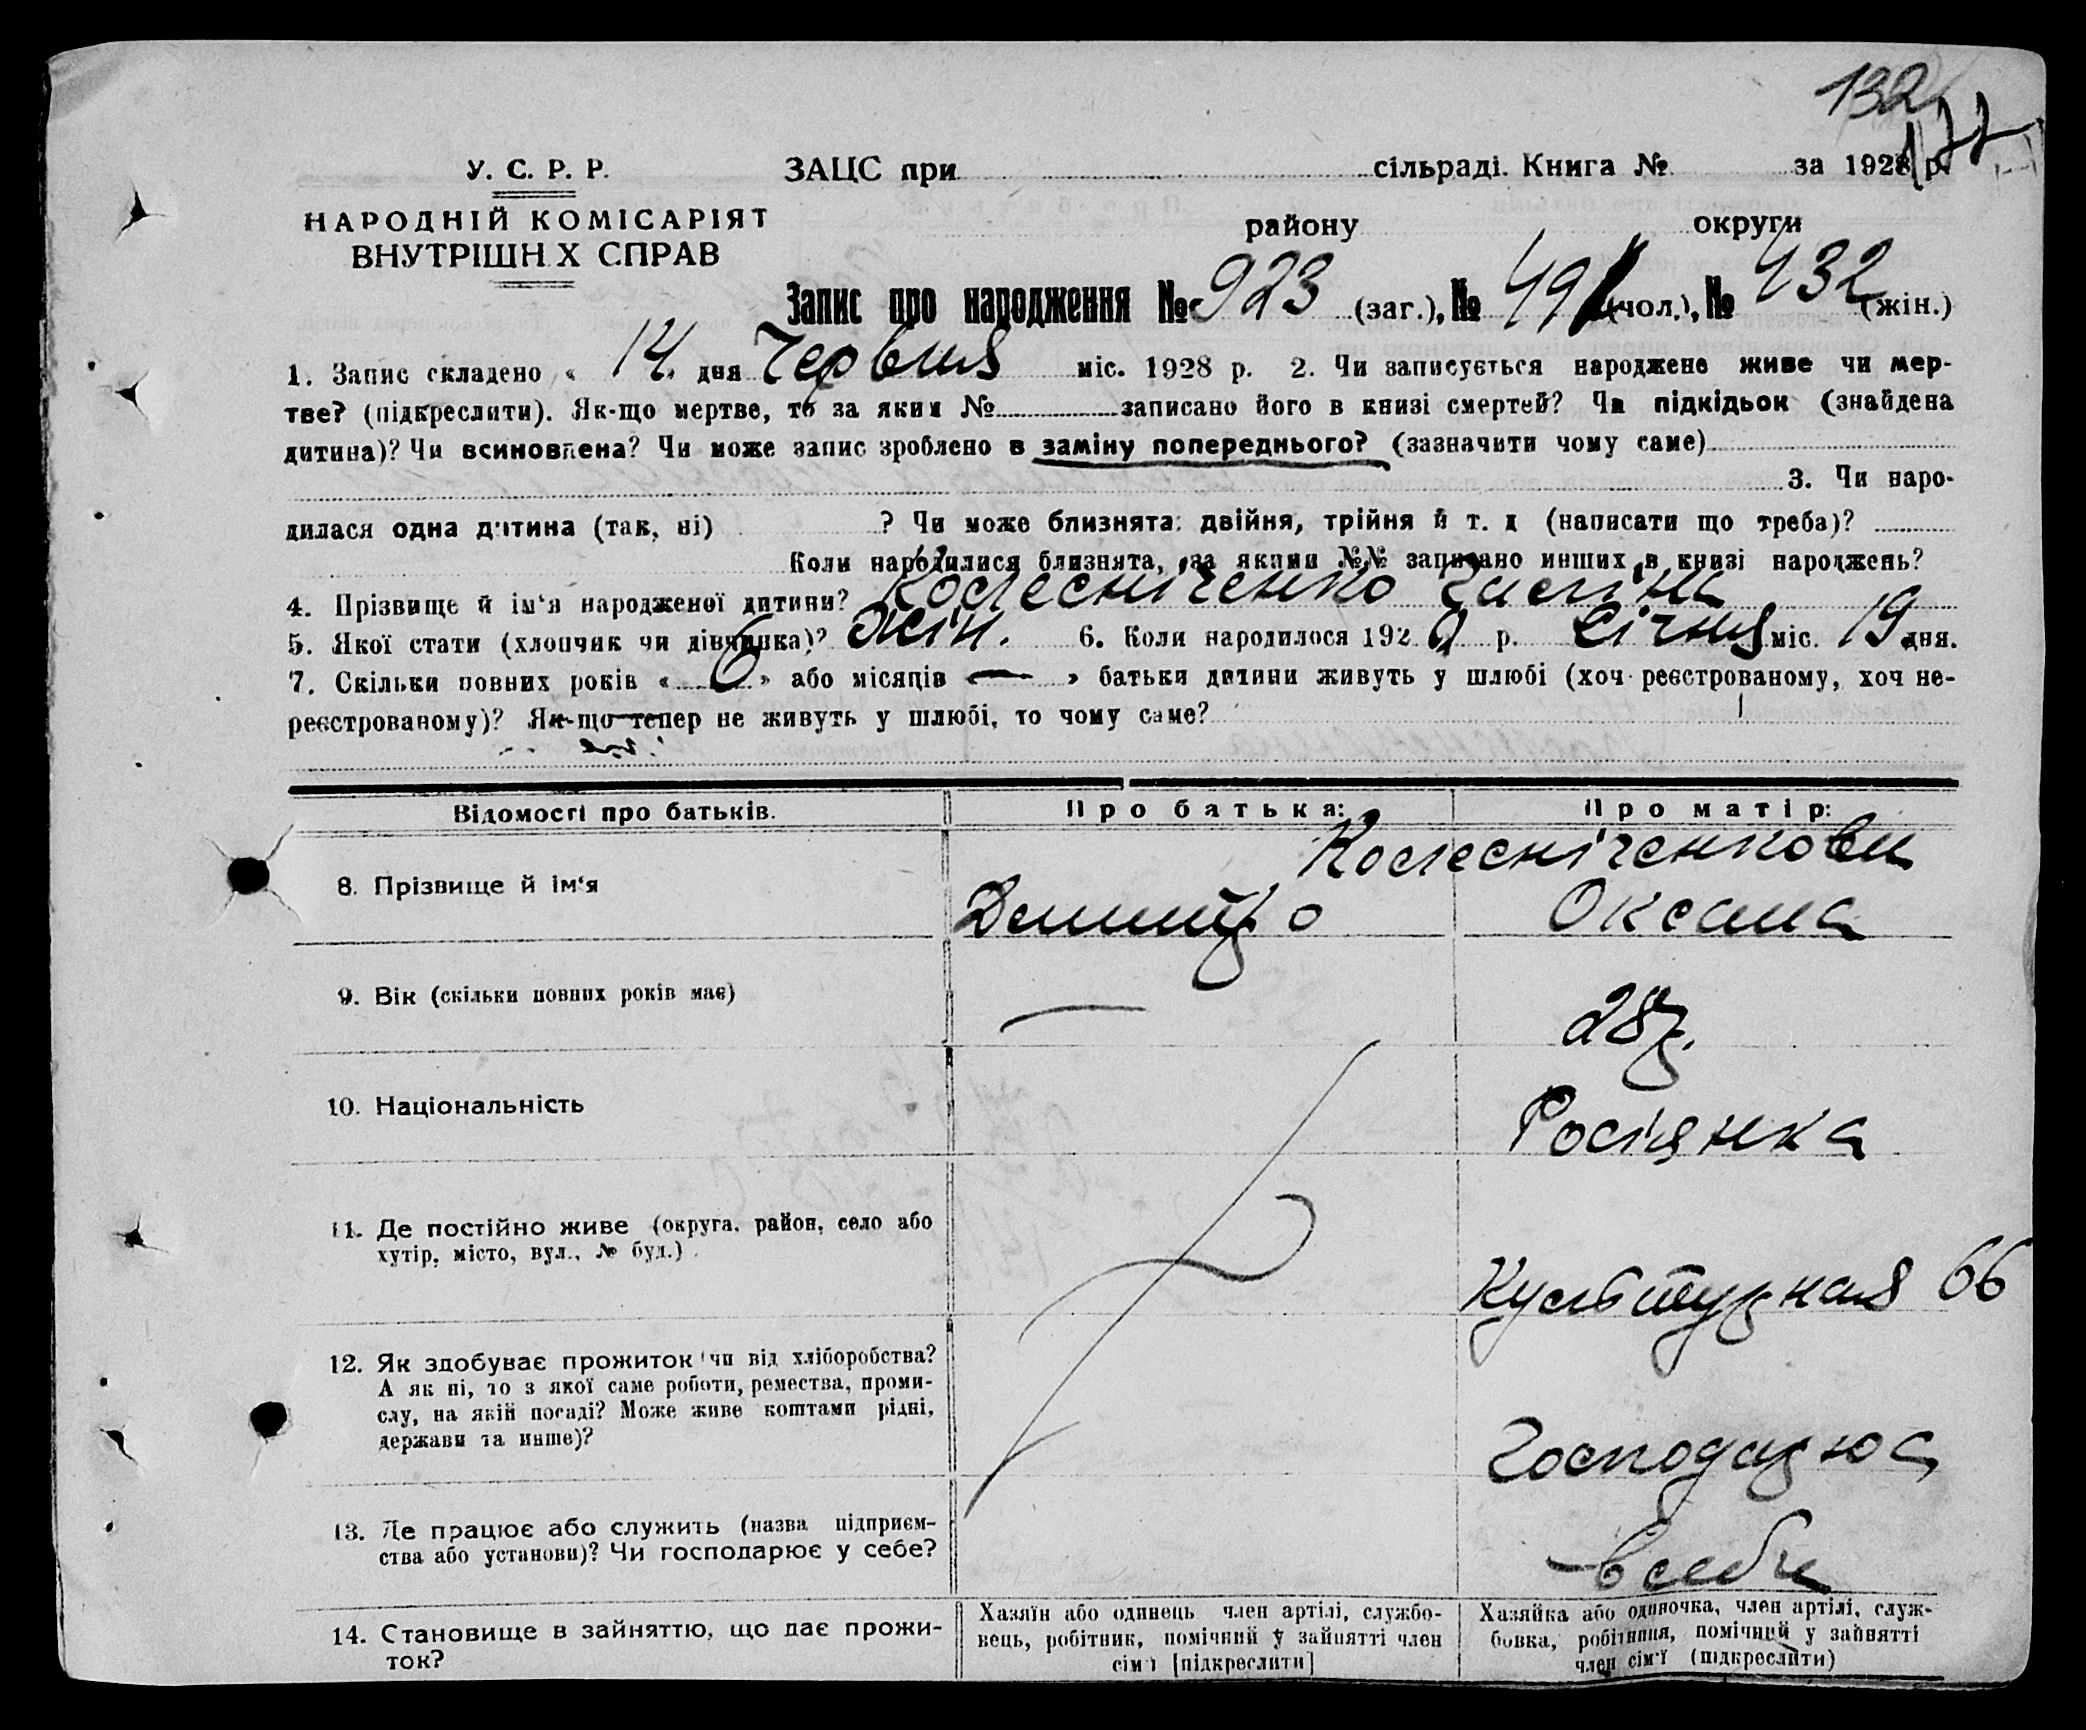 132
177
У. С. Р. Р.
ЗАЦС при сільраді. Книга № за 1928 р.
НАРОДНІЙ КОМІСАРІЯТ
ВНУТРІШН Х СПРАВ
району округи
Запис про народження № 923 (заг.), № 491 (чол.), № 432 (жін.)
1. Запис складено « 14 » дня Червня міс. 1928 р. 2. Чи записується народжене живе чи мер-
тве? (підкреслити). Як-що мертве, то за яким № записано його в книзі смертей? Чи підкідьок (знайдена
дитина)? Чи всиновлена? Чи може запис зроблено в заміну попереднього? (зазначити чому саме)
3. Чи наро-
дилася одна дитина (так, ні) ? Чи може близнята: двійня, трійня й т. д (написати що треба)?
Коли народилися близнята, за якими №№ записано инших в книзі народжень?
4. Прізвище й ім'я народженої дитини? Колесніченко Галіна
5. Якої стати (хлопчик чи дівчинка)? Жін. 6. Коли народилося 192 р. Січня міс. 19 дня.
7. Скільки повних років « 6 » або місяців « — » батьки дитини живуть у шлюбі (хоч реєстрованому, хоч не-
реєстрованому)? Як-що тепер не живуть у шлюбі, то чому саме?
Відомості про батьків. Про батька: Про матір:
Колесніченкови
8. Прізвище й ім'я Дмитро Оксана
9. Вік (скільки повних років має) — 28 р.
10. Національність Росіянка
11. Де постійно живе (округа, район, село або
хутір, місто, вул., № буд.) Культурная 66
12. Як здобуває прожиток чи від хліборобства?
А як ні, то з якої саме роботи, ремества, проми-
слу, на якій посаді? Може живе коштами рідні,
держави та инше)? Господарюе
13. Де працює або служить (назва підприєм-
ства або установи)? Чи господарює у себе? в себе
14. Становище в зайняттю, що дає прожи-
ток?
Хазяїн або одинець член артілі, службо-
вець, робітник, помічний у зайнятті член
сім'ї [підкреслити]
Хазяйка або одиночка, член артілі, служ-
бовка, робітниця, помічний у зайнятті
член сім'ї (підкреслити)